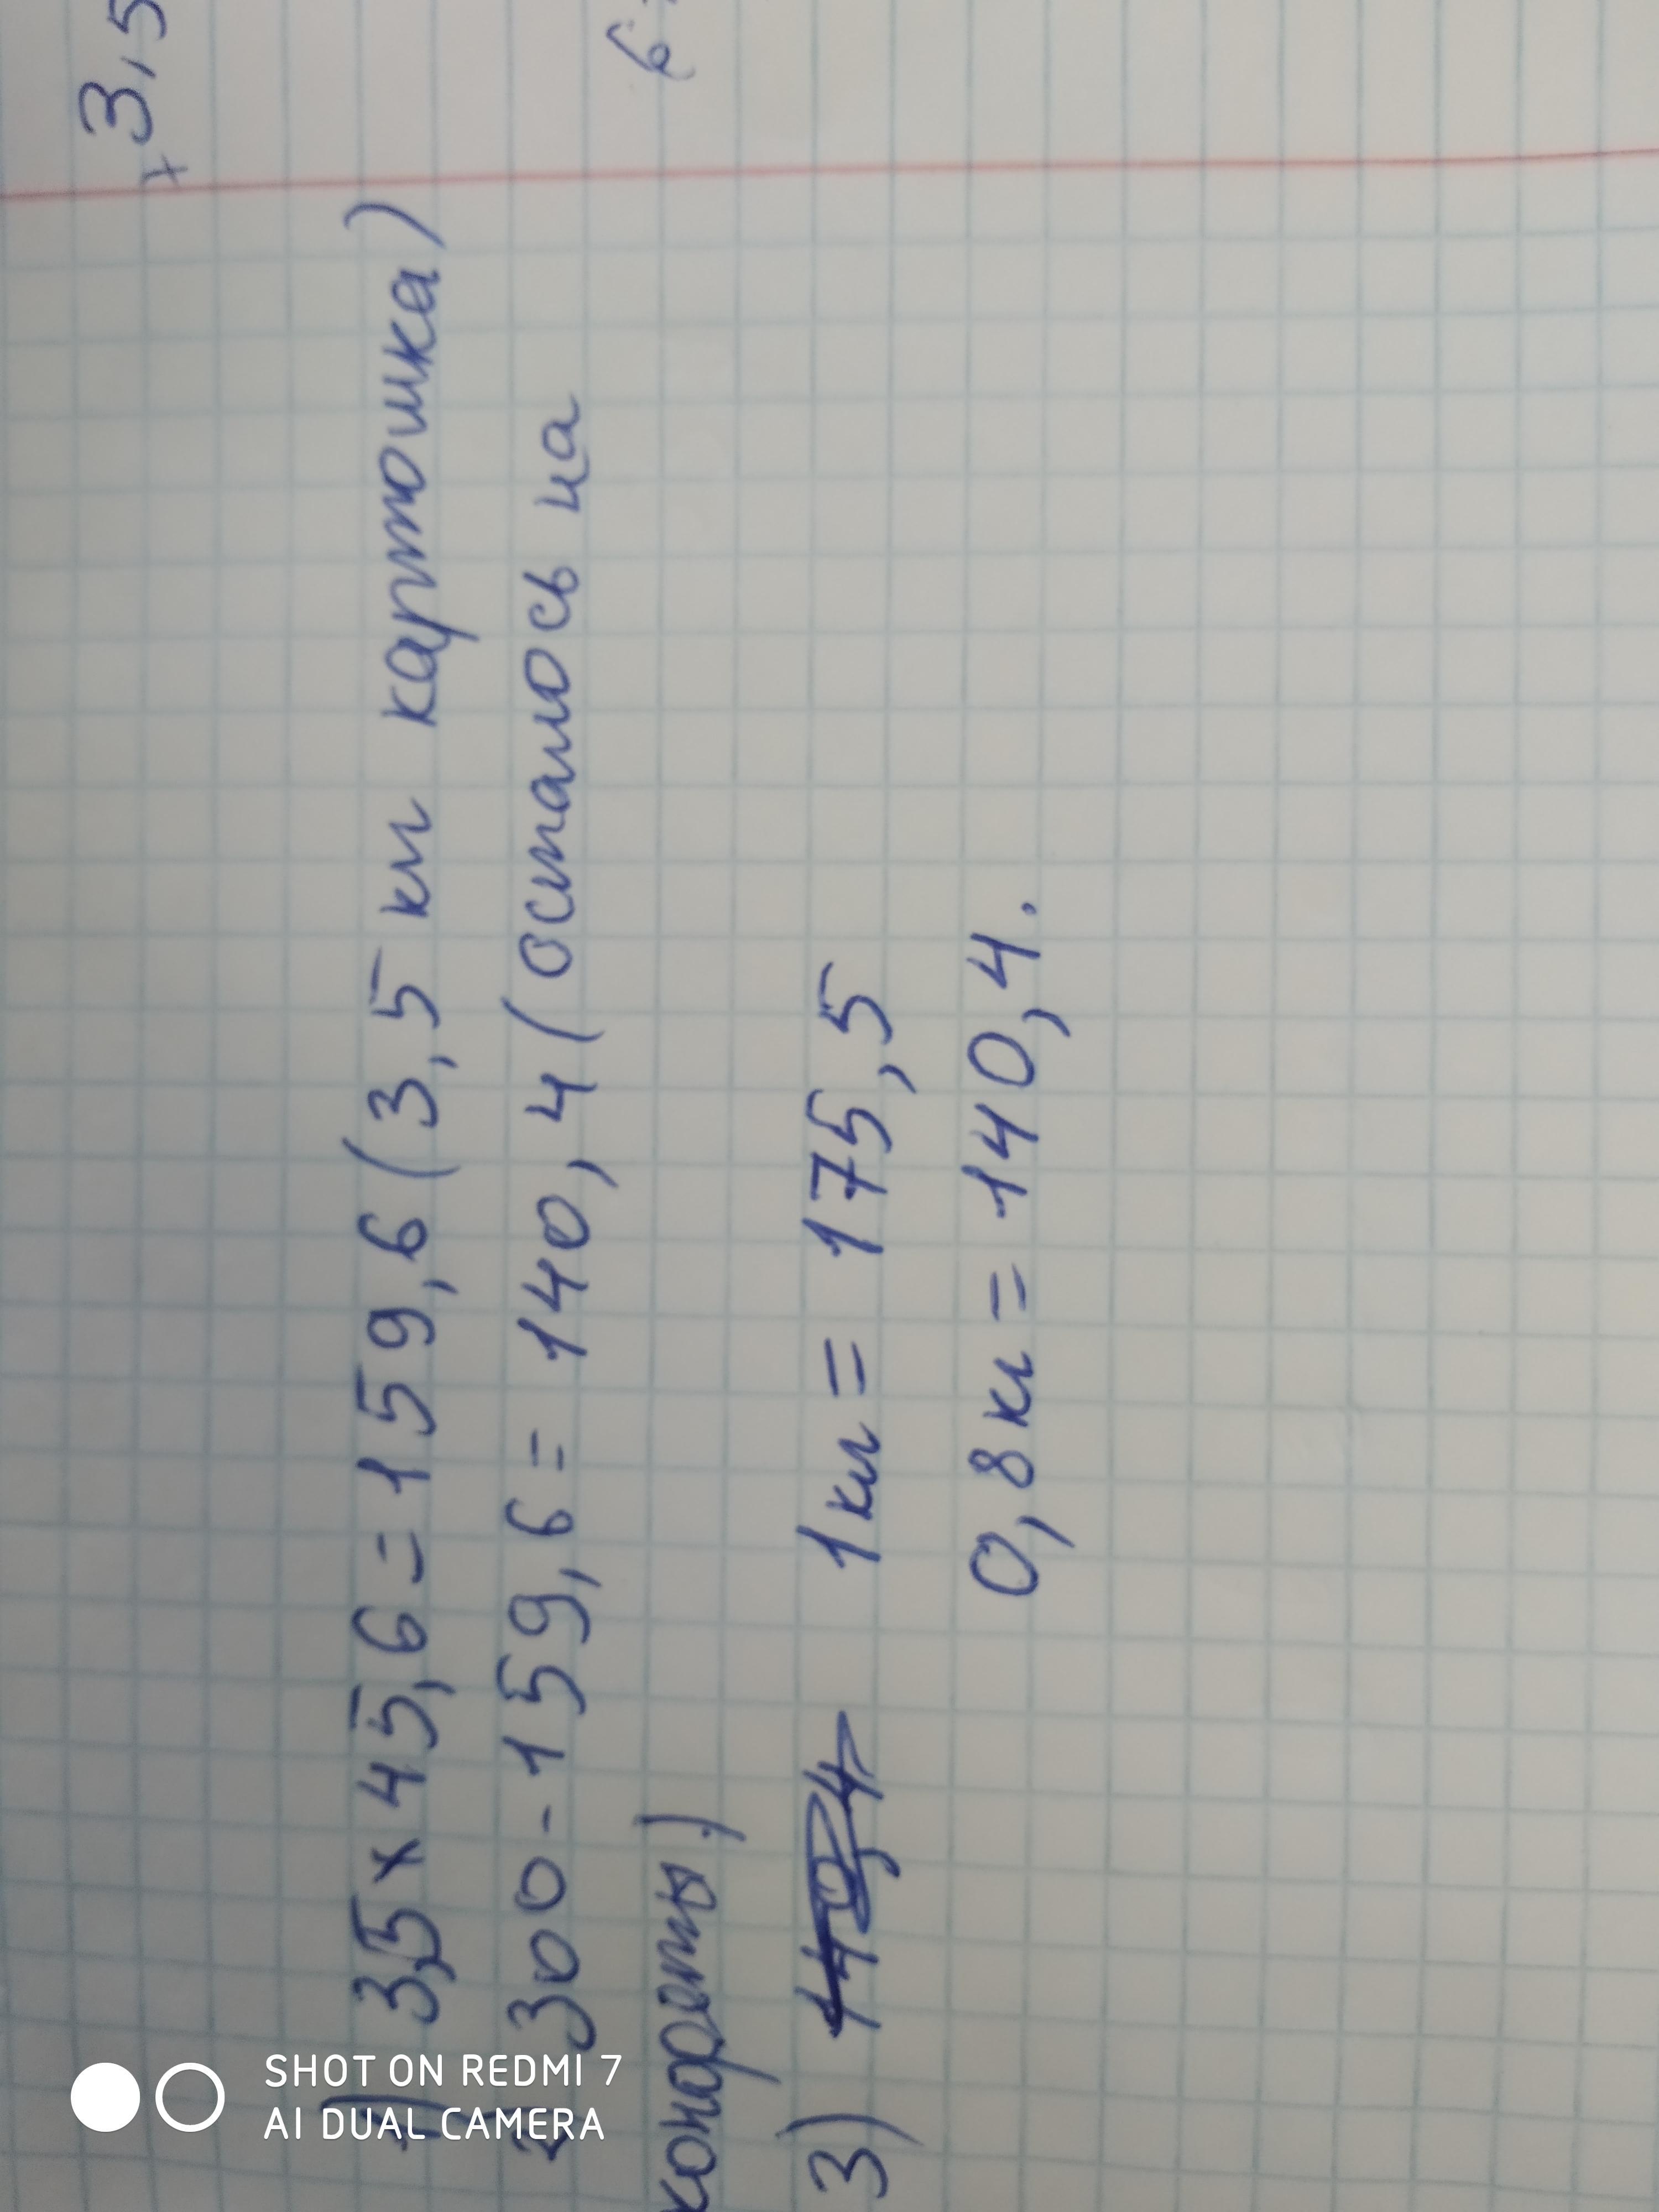 1) 3,5 х 45,6 = 159,6 (3,5 кг картошка)
2 300 - 159,6 = 140,4 (осталось на
конфеты)
3) 140,4 1 кг = 175,5
0,8 кг = 140,4.
х 3,5
6
SHOT ON REDMI 7
AI DUAL CAMERA